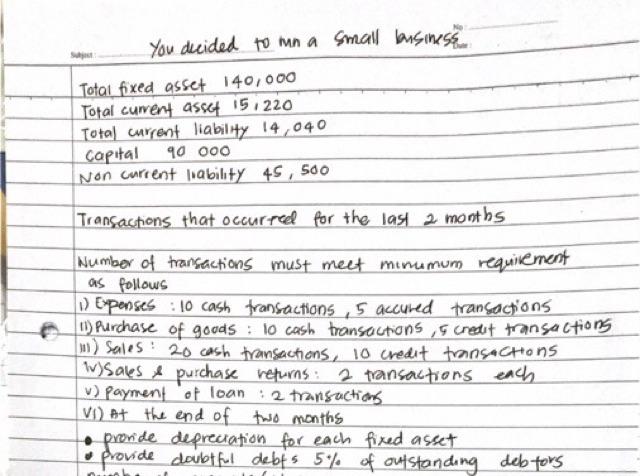 No :
Subject : You decided to run a small business Date :
Total fixed asset 140,000
Total current asset 15,220
Total current liability 14,040
Capital 90 000
Non current liability 45,500
Transactions that occurred for the last 2 months
Number of transactions must meet minumum requirement
as follows
i) Expenses : 10 cash transactions, 5 accured transactions
ii) Purchase of goods : 10 cash transactions, 5 credit transactions
iii) Sales : 20 cash transactions, 10 credit transactions
iv) Sales & purchase returns : 2 transactions each
v) Payment of loan : 2 transactions
vi) At the end of two months
• provide depreciation for each fixed asset
• Provide doubtful debts 5% of outstanding debtors